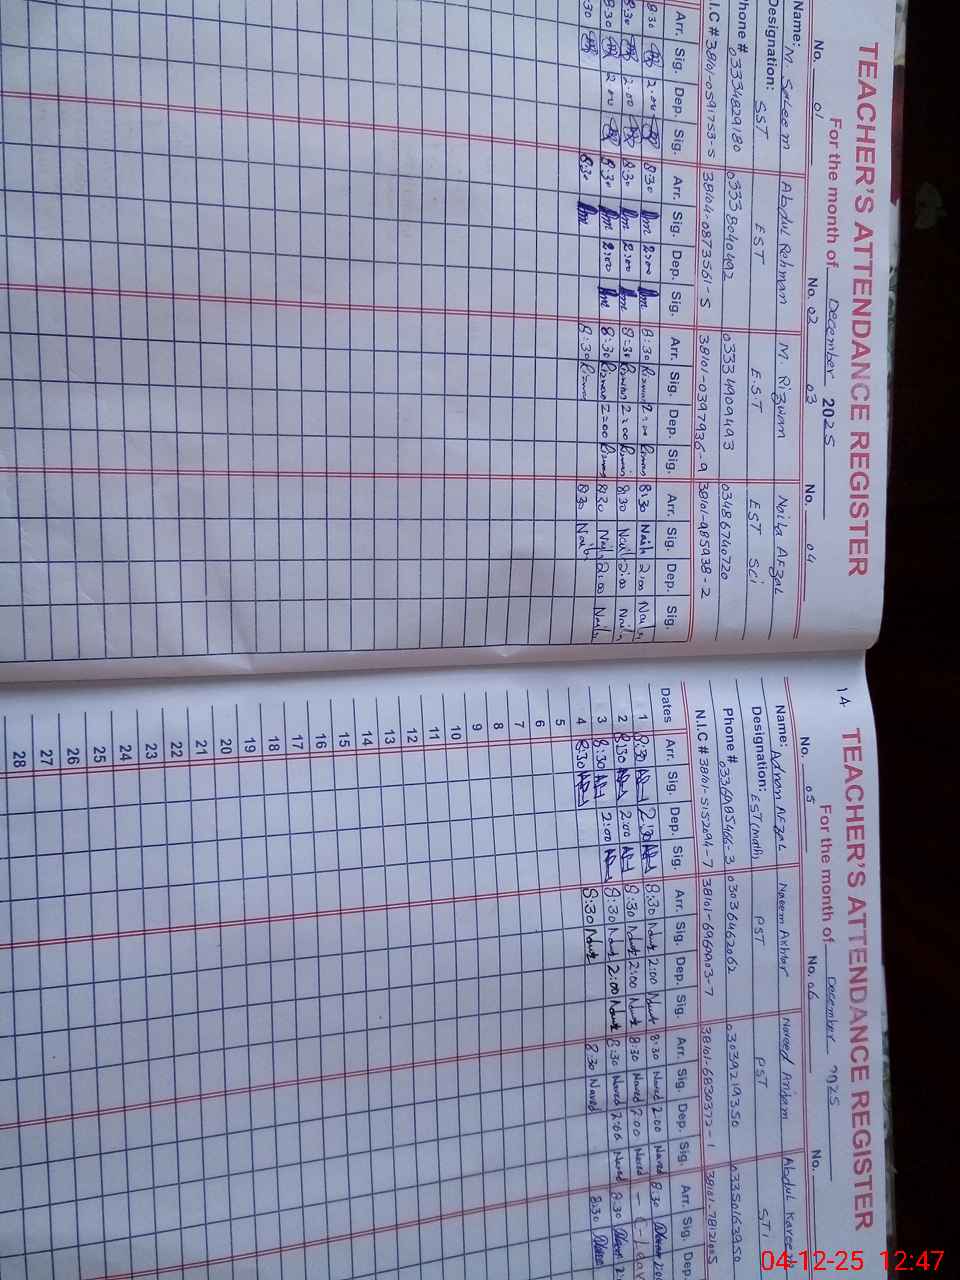 TEACHER'S ATTENDANCE REGISTER
For the month of December 2025
No. 01 No. 02 03 No. 04
Name: M. Saleem Abdul Rehman M. Rizwan Naila Afzal
Designation: SST EST E.S.T EST Sci
Phone # 03334829180 03338040492 03334909493 03486740720
I.C # 38101-0591753-5 38104-0873561-5 38101-0397936-9 38101-985938-2
Arr. Sig. Dep. Sig. Arr. Sig. Dep. Sig. Arr. Sig. Dep. Sig. Arr. Sig. Dep. Sig.
8:30 2:00 8:30 2:00 8:30 Rizwan 2:00 Rizwan 8:30 Naila 2:00 Naila
8:30 2:00 8:30 2:00 8:30 Rizwan 2:00 Rizwan 8:30 Naila 2:00 Naila
8:30 2:00 8:30 2:00 8:30 Rizwan 2:00 Rizwan 8:30 Naila 2:00 Naila
8:30 8:30 8:30 Rizwan 8:30 Naila
14
TEACHER'S ATTENDANCE REGISTER
For the month of December 2025
No. 05 No. 06 No.
Name: Adnan Afzal Naeem Akhtar Naveed Anjum Abdul Kareem
Designation: EST (Math) PST PST
Phone # 03036462062 03039219350 03350163950
N.I.C # 38101-5152094-7 38101-6830372-1
Dates Arr. Sig. Dep. Sig. Arr. Sig. Dep. Sig. Arr. Sig. Dep. Sig. Arr. Sig. Dep.
1 8:30 2:30 8:30 2:00 8:30 Naveed 2:00 Naveed 8:30 2:00
2 8:30 2:00 8:30 2:00 8:30 Naveed 2:00 Naveed
3 8:30 2:00 8:30 2:00 8:30 Naveed 2:00 Naveed 8:30
4 8:30 8:30 8:30 Naveed 8:30
5
6
7
8
9
10
11
12
13
14
15
16
17
18
19
20
21
22
23
24
25
26
27
28
04-12-25 12:47